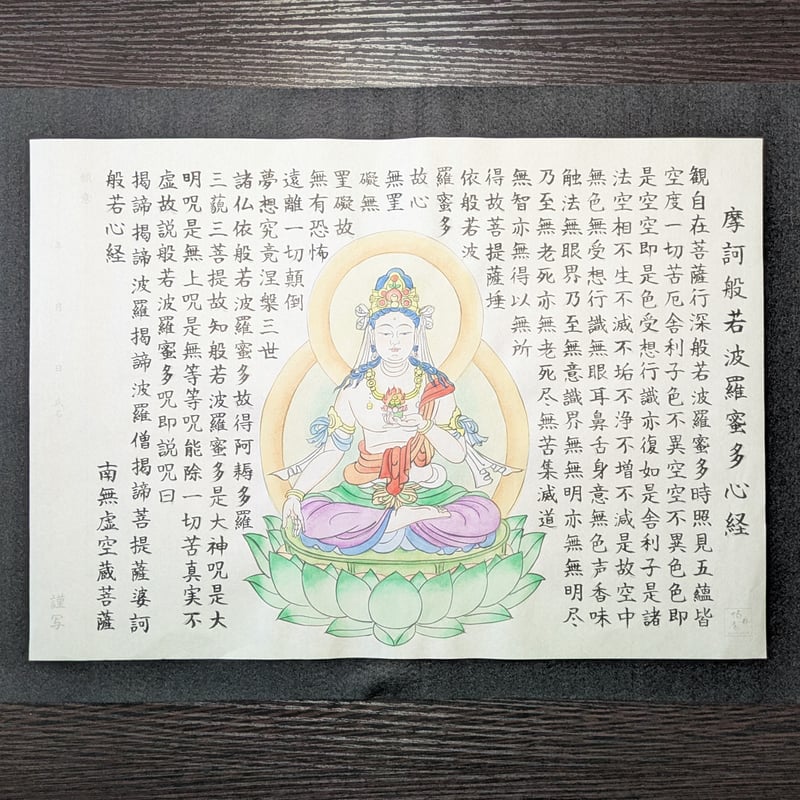 摩訶般若波羅蜜多心経
観自在菩薩行深般若波羅蜜多時照見五蘊皆
空度一切苦厄舎利子色不異空空不異色色即
是空空即是色受想行識亦復如是舎利子是諸
法空相不生不滅不垢不浄不増不減是故空中
無色無受想行識無眼耳鼻舌身意無色声香味
触法無眼界乃至無意識界無無明亦無無明尽
乃至無老死亦無老死尽無苦集滅道
無智亦無得以無所
得故菩提薩埵
依般若波
羅蜜多
故心
無罣
礙無
罣礙故
無有恐怖
遠離一切顛倒
夢想究竟涅槃三世
諸仏依般若波羅蜜多故得阿耨多羅
三藐三菩提故知般若波羅蜜多是大神呪是大
明呪是無上呪是無等等呪能除一切苦真実不
虚故説般若波羅蜜多呪即説呪曰
揭諦揭諦波羅揭諦波羅僧揭諦菩提薩婆訶
般若心経
南無虚空蔵菩薩
年 月 日 氏名
謹写